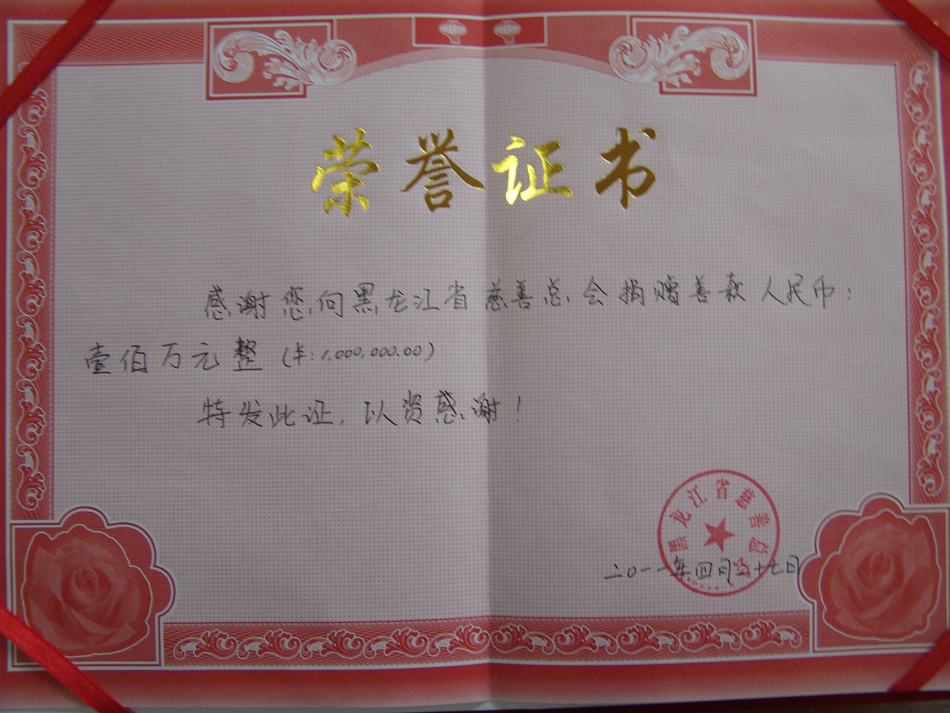 荣誉证书
感谢您向黑龙江省慈善总会捐赠善款人民币：
壹佰万元整（￥:1,000,000.00）
特发此证，以资感谢！
黑龙江省慈善总会
二〇一一年四月二十七日